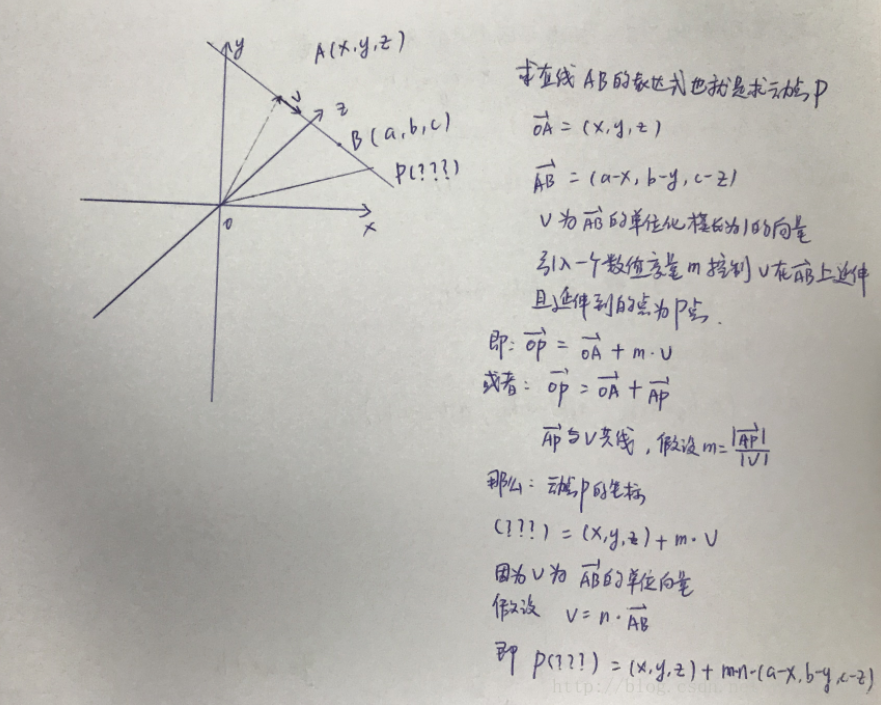 y
A(x,y,z)
v
z
B(a,b,c)
P(???)
o
x
求直线AB的表达式也就是求动点P
OA = (x,y,z)
AB = (a-x, b-y, c-z)
V为AB的单位化模长为1的向量
引入一个数值变量m控制V在AB上延伸
且延伸到的点为P点.
即: OP = OA + m·V
或者: OP = OA + AP
AP与V共线, 假设m= |AP| / |V|
那么: 动点P的坐标
(???) = (x,y,z) + m·V
因为V为AB的单位向量
假设 V = n·AB
即 P(???) = (x,y,z) + m·n·(a-x, b-y, c-z)
http://blog.csdn.ne